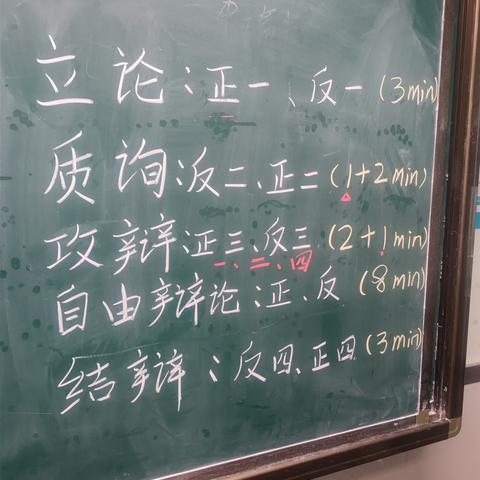 立论:正一、反一(3min)
质询:反二、正二(1+2min)
攻辩:正三、反三(2+1min)
一、二、四
自由辩论:正、反(8min)
结辩:反四、正四(3min)